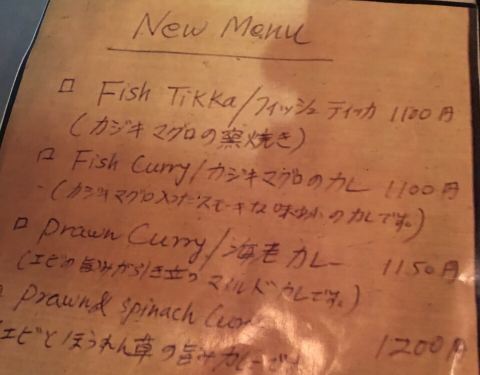 New Menu
□ Fish Tikka/フィッシュティッカ 1100円
(カジキマグロの窯焼き)
□ Fish Curry/カジキマグロのカレー 1100円
(カジキマグロ入ったスモーキな味わいのカレです。)
□ Prawn Curry/海老カレー 1150円
(エビの旨みが引き立つマイルドカレです。)
□ Prawn & spinach Curry 1200円
(エビとほうれん草の旨みカレーです